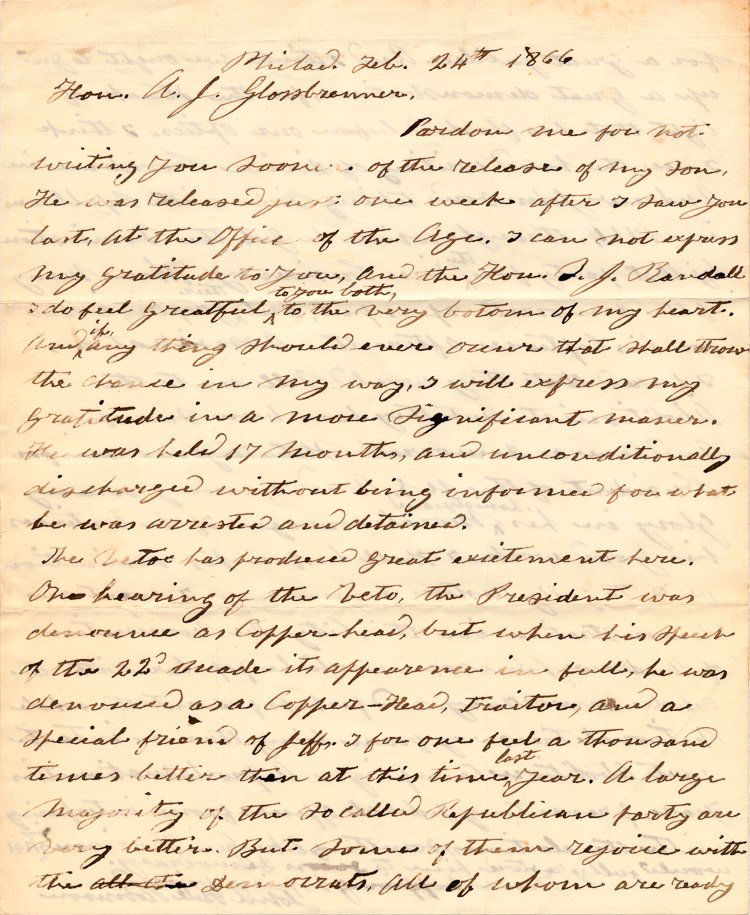 Philad. Feb. 24th 1866
Hon. A. J. Glossbrenner.
Pardon me for not
writing you sooner of the release of my son.
He was released just one week after I saw you
last, at the Office of the Age. I can not express
my gratitude to you, and the Hon. S. J. Randall
I do feel greatful, to you both, to the very botom of my heart.
And if any thing should ever occur that shall throw
the chance in my way, I will express my
gratitude in a more significant maner.
He was held 17 months, and unconditionally
discharged without being informed for what
he was arrested and detained.
The Veto has produced great exietement here.
On hearing of the Veto, the President was
denounce as Copper-head, but when his speech
of the 22d made its appearence in full, he was
denounsed as a Copper-Head, traitor, and a
special friend of Jeff. I for one feel a thousand
times better then at this time last year. A large
majority of the so called Republican party are
very better. But some of them rejoice with
the all the Democrats, all of whom are ready